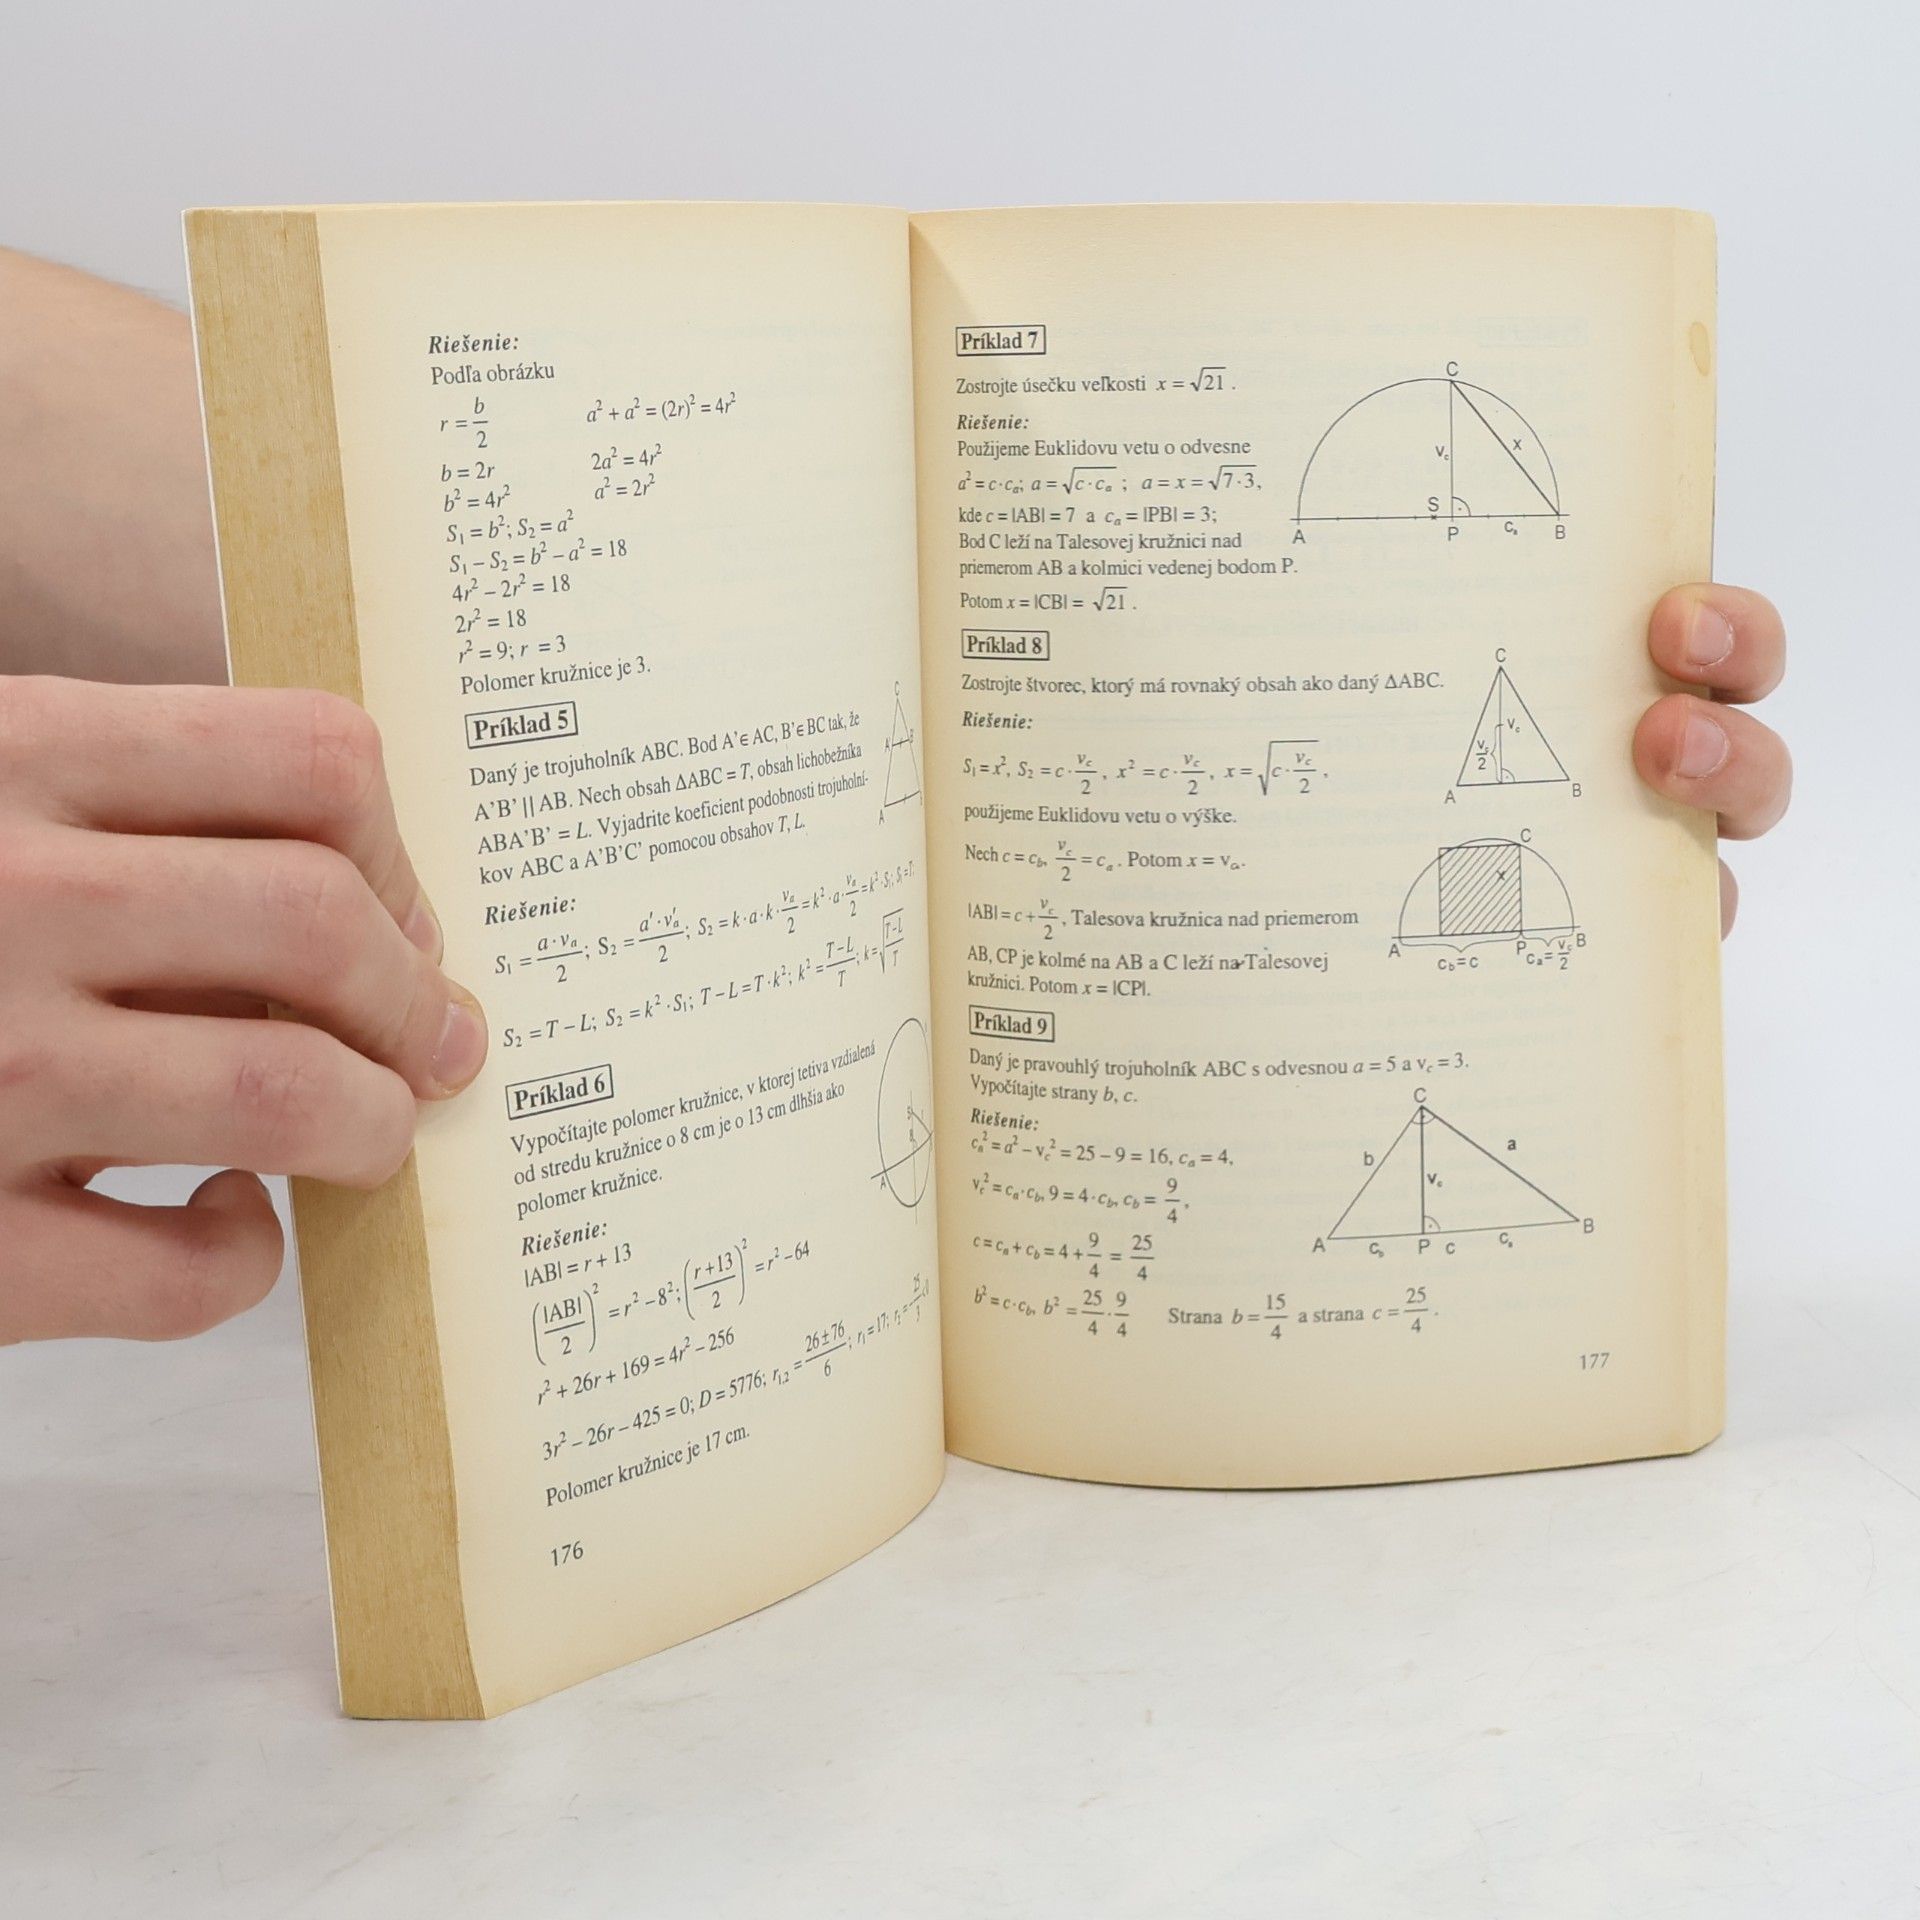 Riešenie:
Podľa obrázku
r = b/2    a² + a² = (2r)² = 4r²
b = 2r    2a² = 4r²
b² = 4r²    a² = 2r²
S₁ = b²; S₂ = a²
S₁ – S₂ = b² – a² = 18
4r² – 2r² = 18
2r² = 18
r² = 9; r = 3
Polomer kružnice je 3.
Príklad 5
Daný je trojuholník ABC. Bod A’∈ AC, B’∈ BC tak, že
A’B’ || AB. Nech obsah ΔABC = T, obsah lichobežníka
ABA’B’ = L. Vyjadrite koeficient podobnosti trojuholní-
kov ABC a A’B’C’ pomocou obsahov T, L.
C
A
Riešenie:
S₁ = a · vₐ/2; S₂ = a′ · v′ₐ/2; S₂ = k · a · k · vₐ/2 = k² · a · vₐ/2 = k² · S₁; S₁ = T;
S₂ = T – L; S₂ = k² · S₁; T – L = T · k²; k² = T–L/T; k = √(T–L/T)
Príklad 6
Vypočítajte polomer kružnice, v ktorej tetiva vzdialená
od stredu kružnice o 8 cm je o 13 cm dlhšia ako
polomer kružnice.
A
Riešenie:
|AB| = r + 13
(|AB|/2)² = r² – 8²; (r + 13/2)² = r² – 64
r² + 26r + 169 = 4r² – 256
3r² – 26r – 425 = 0; D = 5776; r₁,₂ = 26 ± 76/6; r₁ = 17; r₂ = –25/3
Polomer kružnice je 17 cm.
176
Príklad 7
Zostrojte úsečku veľkosti x = √21 .
Riešenie:
Použijeme Euklidovu vetu o odvesne
a² = c · cₐ; a = √(c · cₐ) ; a = x = √(7 · 3),
kde c = |AB| = 7 a cₐ = |PB| = 3;
Bod C leží na Talesovej kružnici nad
priemerom AB a kolmici vedenej bodom P.
Potom x = |CB| = √21 .
C
x
v_c
S
A P cₐ B
Príklad 8
Zostrojte štvorec, ktorý má rovnaký obsah ako daný ΔABC.
Riešenie:
S₁ = x², S₂ = c · v_c/2 , x² = c · v_c/2 , x = √(c · v_c/2) ,
použijeme Euklidovu vetu o výške.
Nech c = c_b, v_c/2 = cₐ . Potom x = v꜀ₐ.
|AB| = c + v_c/2 , Talesova kružnica nad priemerom
AB, CP je kolmé na AB a C leží na Talesovej
kružnici. Potom x = |CP|.
C
v_c
v_c/2
A B
C
x
A P B
c_b = c cₐ = v_c/2
Príklad 9
Daný je pravouhlý trojuholník ABC s odvesnou a = 5 a v_c = 3.
Vypočítajte strany b, c.
Riešenie:
cₐ² = a² – v_c² = 25 – 9 = 16, cₐ = 4,
v_c² = cₐ · c_b, 9 = 4 · c_b, c_b = 9/4 ,
c = cₐ + c_b = 4 + 9/4 = 25/4
b² = c · c_b, b² = 25/4 · 9/4    Strana b = 15/4 a strana c = 25/4 .
C
b a
v_c
A c_b P c cₐ B
177